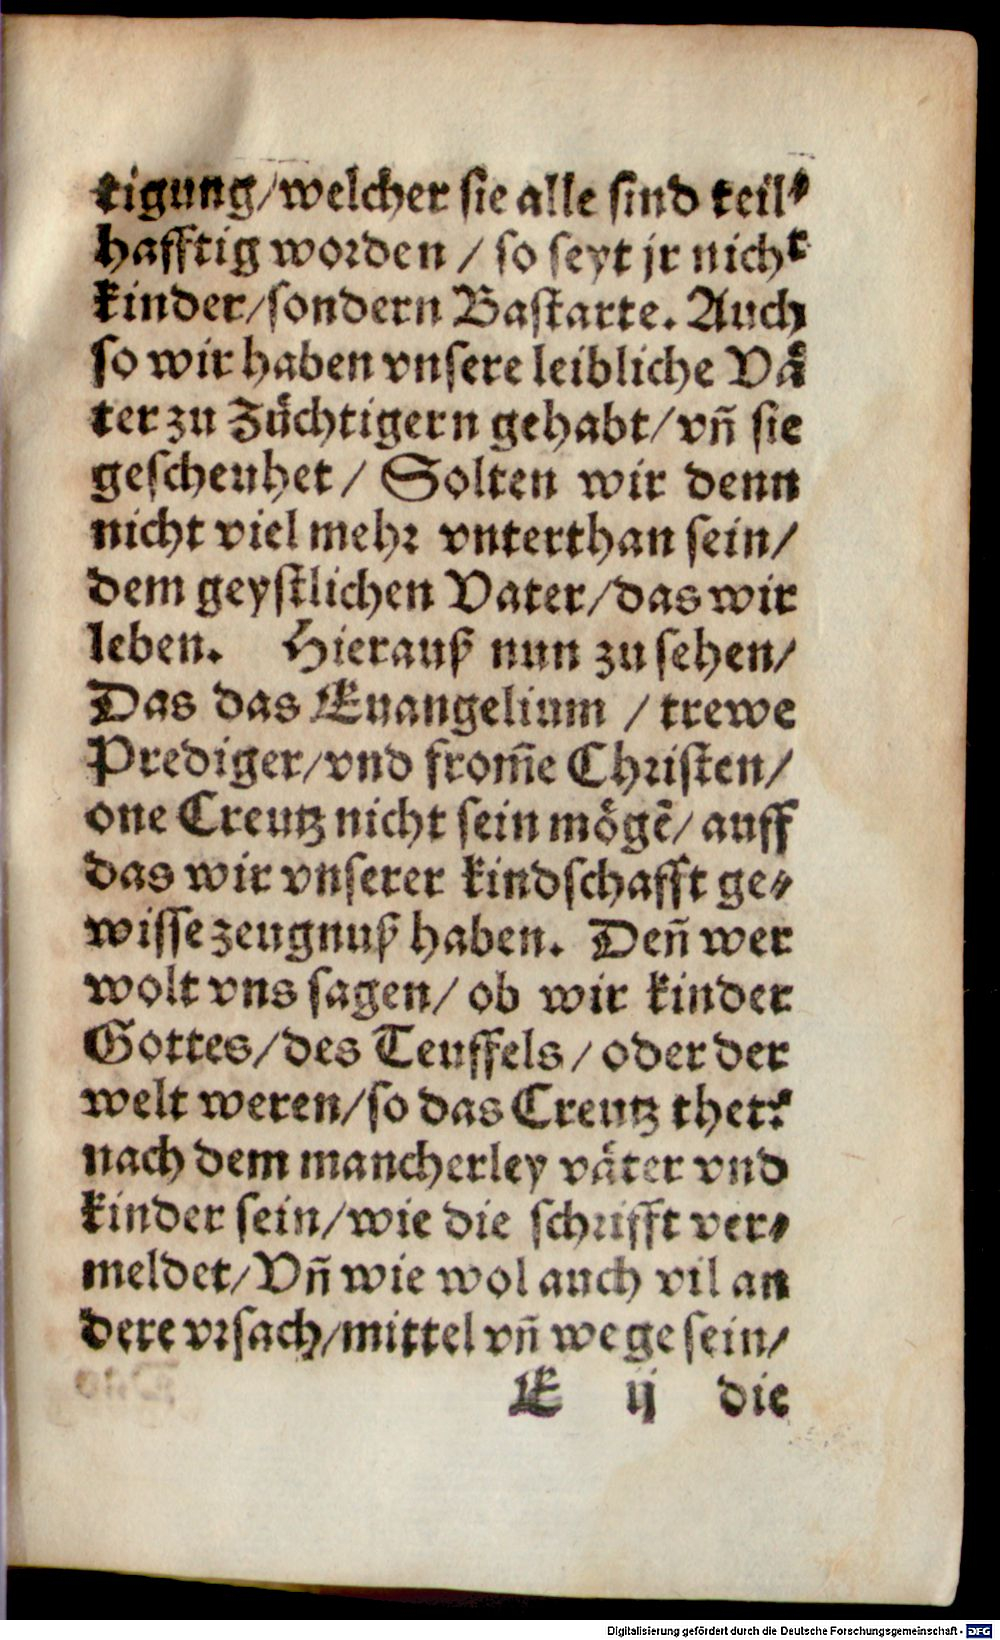 tigung/welcher sie alle sind teil⸗
hafftig worden / so seyt jr nicht
kinder/sondern Bastarte. Auch
so wir haben vnsere leibliche Vaͤ
ter zu Zuͤchtigern gehabt/ vñ sie
gescheuhet / Solten wir denn
nicht viel mehr vnterthan sein/
dem geystlichen Vater/das wir
leben. Hierauß nun zu sehen/
Das das Euangelium / trewe
Prediger/vnd from̃e Christen/
one Creutz nicht sein moͤgẽ/ auff
das wir vnserer kindschafft ge⸗
wisse zeugnuß haben. Deñ wer
wolt vns sagen/ ob wir kinder
Gottes/des Teuffels / oder der
welt weren/so das Creutz thet?
nach dem mancherley vaͤter vnd
kinder sein/wie die schrifft ver⸗
meldet/Vñ wie wol auch vil an
dere vrsach/mittel vñ wege sein/
E ij die
Digitalisierung gefördert durch die Deutsche Forschungsgemeinschaft - DFG